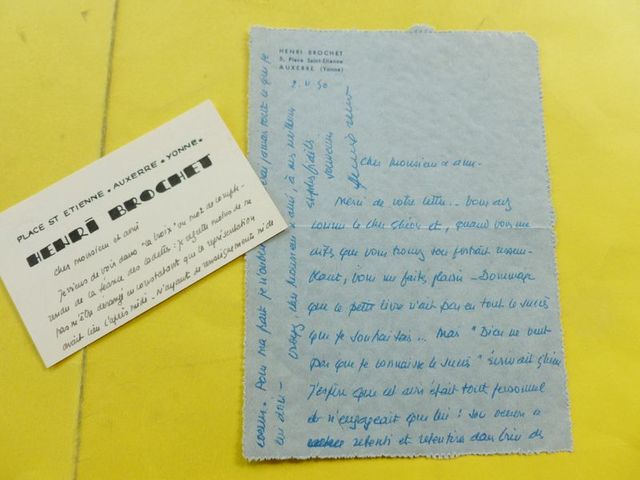 PLACE ST ETIENNE • AUXERRE • YONNE •
HENRI BROCHET
Cher monsieur et ami
Je viens de voir dans "La Croix" un mot de compte-
rendu de la séance des cadets : je regrette moins de ne
pas m'être dérangé en constatant que la représentation
avait lieu l'après-midi - N'ayant de renseignements ni de
HENRI BROCHET
5, Place Saint-Etienne
AUXERRE (Yonne)
50
Cher monsieur et ami -
Merci de votre lettre.. Vous avez
connu le cher Ghéon et, quand vous me
dites que vous trouvez son portrait ressem-
blant, vous me faites plaisir - Dommage
que le petit livre n'ait pas eu tout le succès
que je souhaitais... Mais "Dieu ne veut
pas que je connaisse le succès" écrivait Ghéon
J'espère que cet avis était tout personnel
et n'engageait que lui ! Son oeuvre a
retenti et retentira dans bien des
coeurs. Pour ma part je n'oublie
tout ce que je
lui dois -
Croyez, cher Monsieur et ami, à mes meilleurs
souvenirs